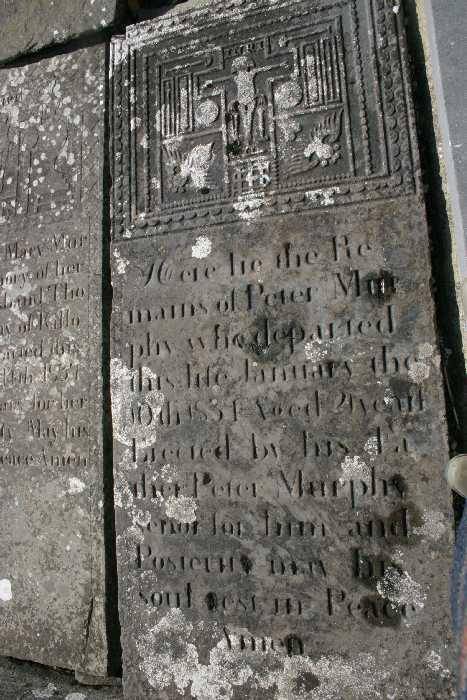 Here lie the Re
mains of Peter Mur
phy who departed
this life January the
10th 1834 Aged 2 years
Erected by his Fa
ther Peter Murphy
senor for him and
Posterity may his
soul rest in Peace
Amen
Mary Mur
ory of her
band Tho
of Killo
arted this
for her
May his
eace Amen